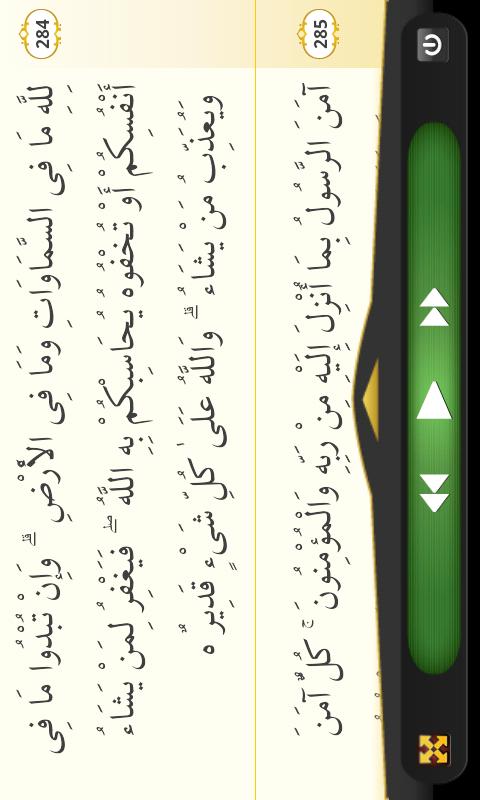 284
لِلَّهِ مَا فِى السَّمَاوَاتِ وَمَا فِى الْأَرْضِ ۗ وَإِن تُبْدُوا مَا فِى
أَنْفُسِكُمْ أَوْ تُخْفُوهُ يُحَاسِبْكُم بِهِ اللَّهُ ۖ فَيَغْفِرُ لِمَنْ يَشَاءُ
وَيُعَذِّبُ مَن يَشَاءُ ۗ وَاللَّهُ عَلَىٰ كُلِّ شَىْءٍ قَدِيرٌ ه
285
آمَنَ الرَّسُولُ بِمَا أُنْزِلَ إِلَيْهِ مِن رَّبِّهِ وَالْمُؤْمِنُونَ ۚ كُلٌّ آمَنَ